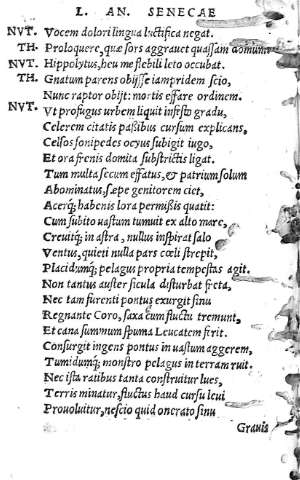 L. AN. SENECAE
NVT. Vocem dolori lingua luctifica negat.
TH. Proloquere, quæ sors aggrauet quassam domum
NVT. Hippolytus, heu me flebili leto occubat.
TH. Gnatum parens obijsse iampridem scio,
Nunc raptor obijt: mortis effare ordinem.
NVT. Vt profugus urbem liquit infesto gradu,
Celerem citatis passibus cursum explicans,
Celsos sonipedes ocyus subigit iugo,
Et ora frenis domita substrictis ligat.
Tum multa secum effatus, & patrium solum
Abominatus, sæpe genitorem ciet,
Acerq; habenis lora permissis quatit:
Cum subito uastum tumuit ex alto mare,
Creuitq; in astra, nullus inspirat salo
Ventus, quieti nulla pars cœli strepit,
Placidumq; pelagus propria tempestas agit.
Non tantus auster sicula disturbat freta,
Nec tam furenti pontus exurgit sinu
Regnante Coro, saxa cum fluctu tremunt,
Et cana summum spuma Leucatem ferit.
Consurgit ingens pontus in uastum aggerem,
Tumidumq; monstro pelagus in terram ruit.
Nec ista ratibus tanta construitur lues,
Terris minatur, fluctus haud cursu leui
Prouoluitur, nescio quid onerato sinu
Grauis